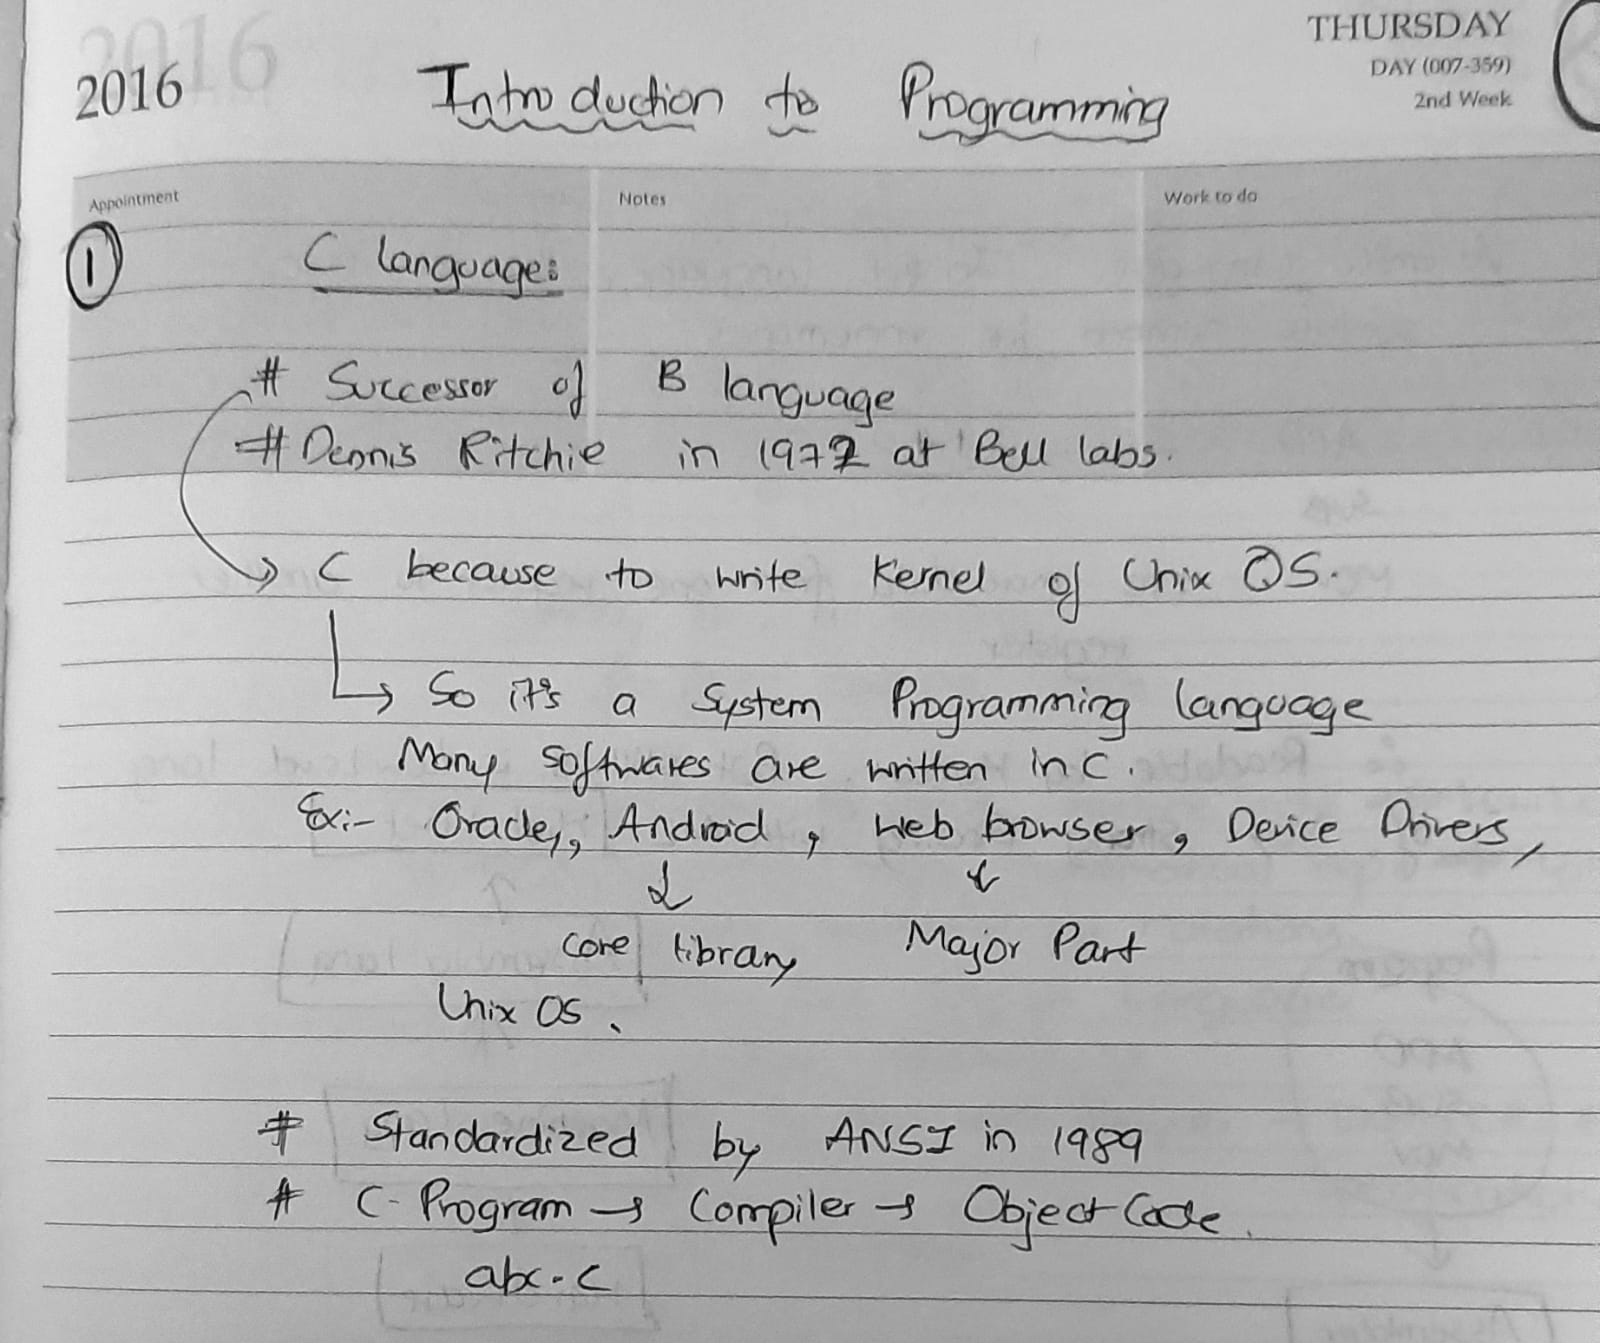 THURSDAY
2016
DAY (007-359)
2nd Week
Introduction to Programming
Appointment Notes Work to do
1 C language:
# Successor of B language
# Dennis Ritchie in 1972 at Bell labs.
C because to write Kernel of Unix OS.
So it's a System Programming language
Many softwares are written in C.
Ex:- Oracle, Android, web browser, Device Drivers,
core library Major Part
Unix OS.
# Standardized by ANSI in 1989
# C-Program → Compiler → Object Code.
abc.c